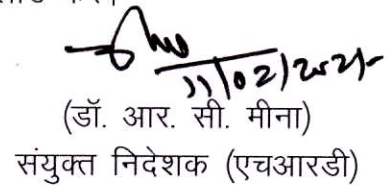 11/02/2021
(डॉ. आर. सी. मीना)
संयुक्त निदेशक (एचआरडी)